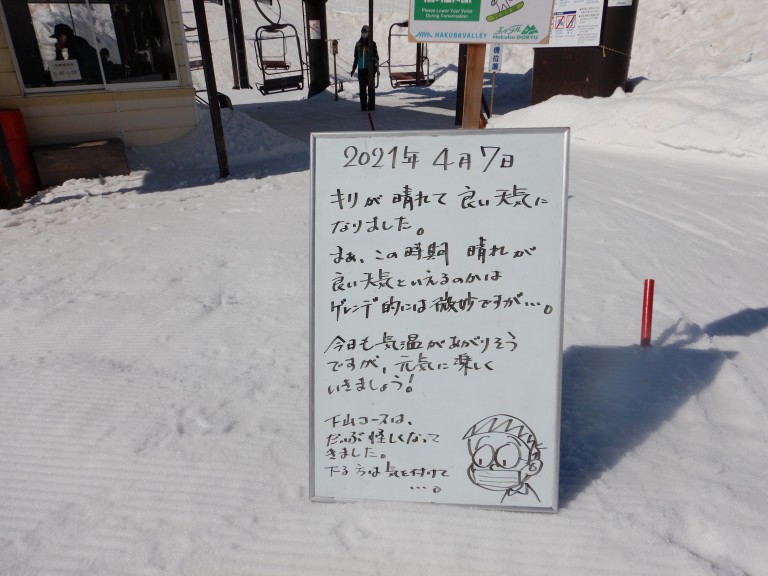 Please Lower Your Voice
During Conversation
HAKUBAVALLEY
エイブル
Hakuba GORYU
2021年 4月 7日
キリが 晴れて 良い天気に
なりました。
まぁ、この時期 晴れが
良い天気といえるのかは
ゲレンデ的には微妙ですが…。
今日も気温があがりそう
ですが、元気に楽しく
いきましょう!
下山コースは、
だいぶ怪しくなって
きました。
下る方は気を付けて
…。